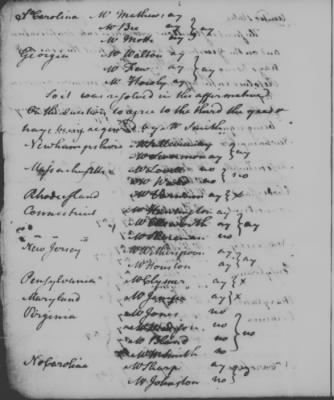 S Carolina Mr Mathews ay
Mr Bee ay } ay
Mr Motte ay
Georgia Mr Walton ay
Mr Few ay } ay
Mr Howly ay
So it was resolved in the affirmative
On the question to agree to the third the yeas &
nays being required by Mr
Newhampshire Mr Sullivan ay
Mr Livermore ay } ay
Massachusetts Mr Lovell no
Mr Ward no } no
Rhode Island Mr Varnum ay } x
Connecticut Mr Huntington ay
Mr Ellsworth ay } ay
Mr Sherman no
New Jersey Mr Witherspoon ay
Mr Houston ay } ay
Pensylvania Mr Clymer ay } x
Maryland Mr Jenifer ay } x
Virginia Mr Jones no
Mr Madison no } no
Mr Bland no
Mr Smith no
No Carolina Mr Sharpe ay
Mr Johnston no }